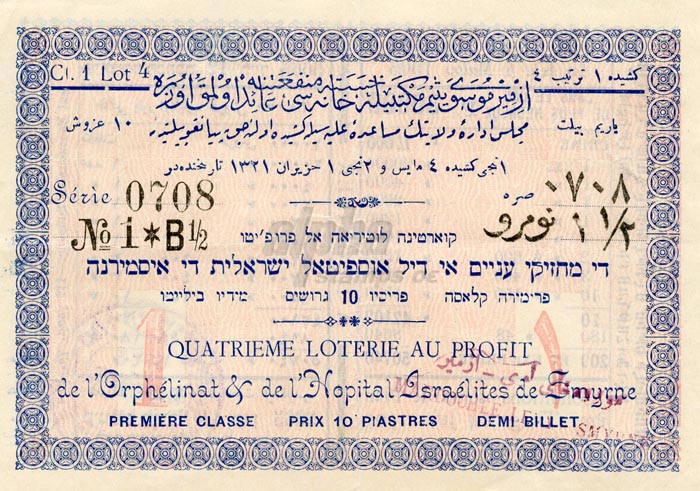 Cl. 1 Lot 4
كشيده ١ ترتيب ٤
ازميرده موسوى يتيم مكتبيله خسته خانه سى منفعتنه عائد اولمق اوزره
ياريم بيلت
مجلس اداره ولايتك مساعدۀ عليه سيله كشيده اولنه جق پيانقو بيلتيدر
١٠ غروش
١ نجى كشيده ٤ مايس و ٢ نجى ١ حزيران ١٣٢١ تاريخنده در
Série 0708
٠٧٠٨ صره
No 1*B½
١ ١/٢ نومرو
קוארטינה לוטיריאה אל פרופ׳יטו
די מחזיקי עניים אי דיל אוספיטאל ישראלית די איסמירנה
פרימירה קלאסה פריסיו 10 גרושים מידיו בילייטו
QUATRIEME LOTERIE AU PROFIT
de l'Orphélinat & de l'Hopital Israélites de Smyrne
PREMIÈRE CLASSE PRIX 10 PIASTRES DEMI BILLET
1
١